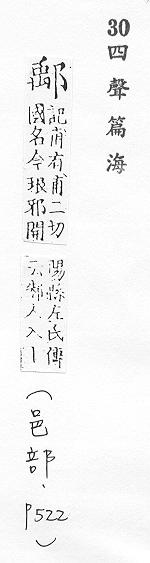 30四聲篇海
鄅
記甫有甫二切
國名今琅邪開
陽縣左氏傳
云鄅人入
(邑部、p522)